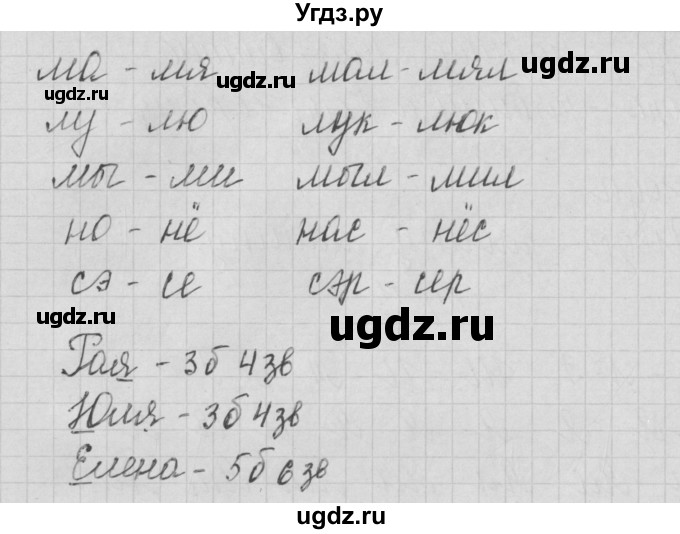 Угдз.ру
ма - мя мал - мял ugdz.ru
ugdz.ru ugdz.ru
лу - лю лук - люк
мы - ми мыл - мил
но - нё нас - нёс
сэ - се сэр - сер
ugdz.ru ugdz.ru
Рая - 3б 4зв
Юля - 3б 4зв
Елена - 5б 6зв
ugdz.ru